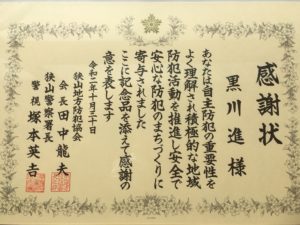 感謝状
黒川進様
あなたは自主防犯の重要性を
よく理解され積極的な地域
防犯活動を推進し安全で
安心な防犯のまちづくりに
寄与されました
ここに記念品を添えて感謝の
意を表します
令和二年十月二十日
狭山地方防犯協会
会長田中龍夫
狭山警察署長
警視塚本英吉